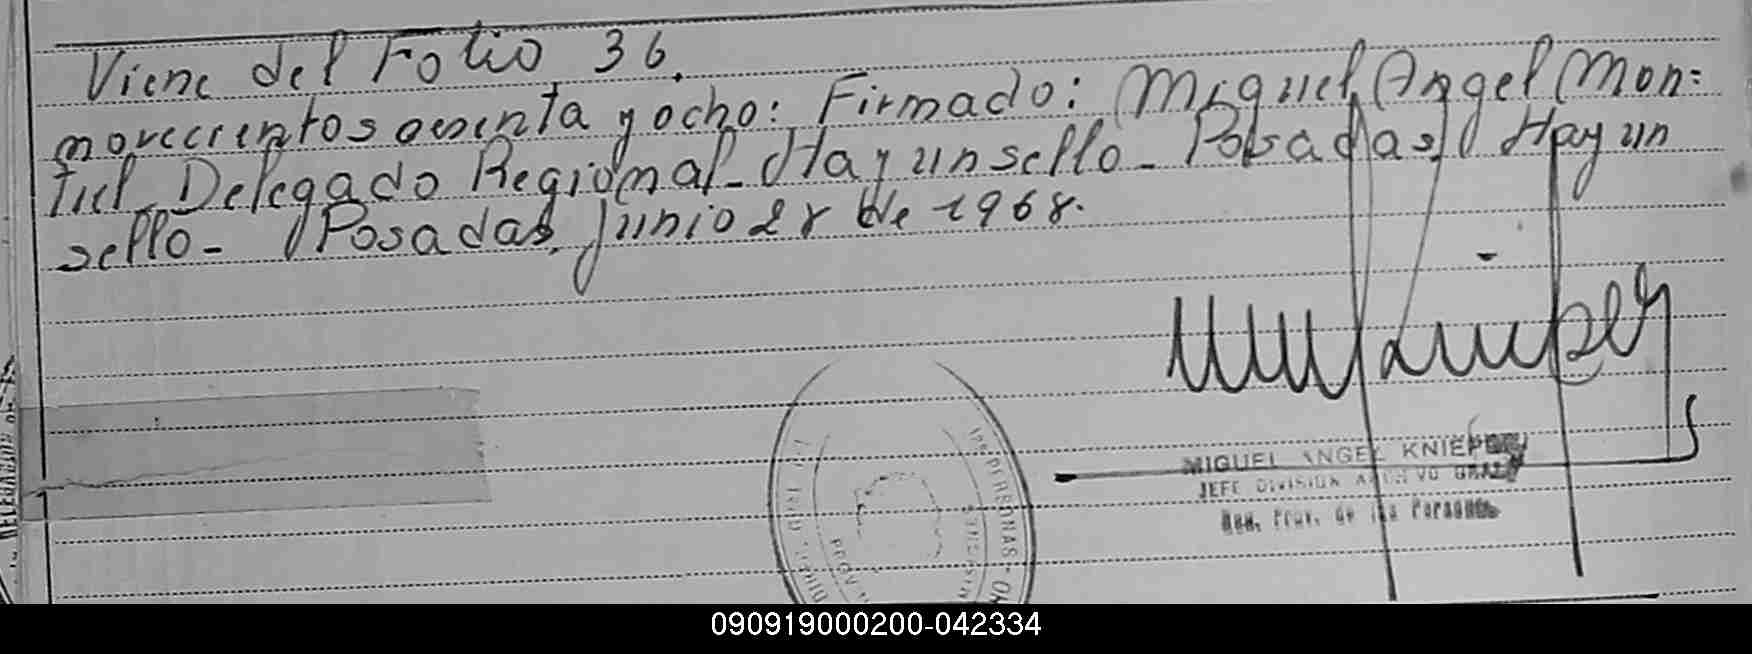 Viene del Folio 36.
novecientos sesenta y ocho: Firmado: Miguel Angel Mon=
tiel Delegado Regional - Hay un sello - Posadas Hay un
sello - Posadas, junio 28 de 1968.
MIGUEL ANGEL KNIE
JEFE DIVISION ARCHIVO GRAL
Reg. Prov. de las Personas
DE PERSONAS
PROV.
MISIONES
090919000200-042334